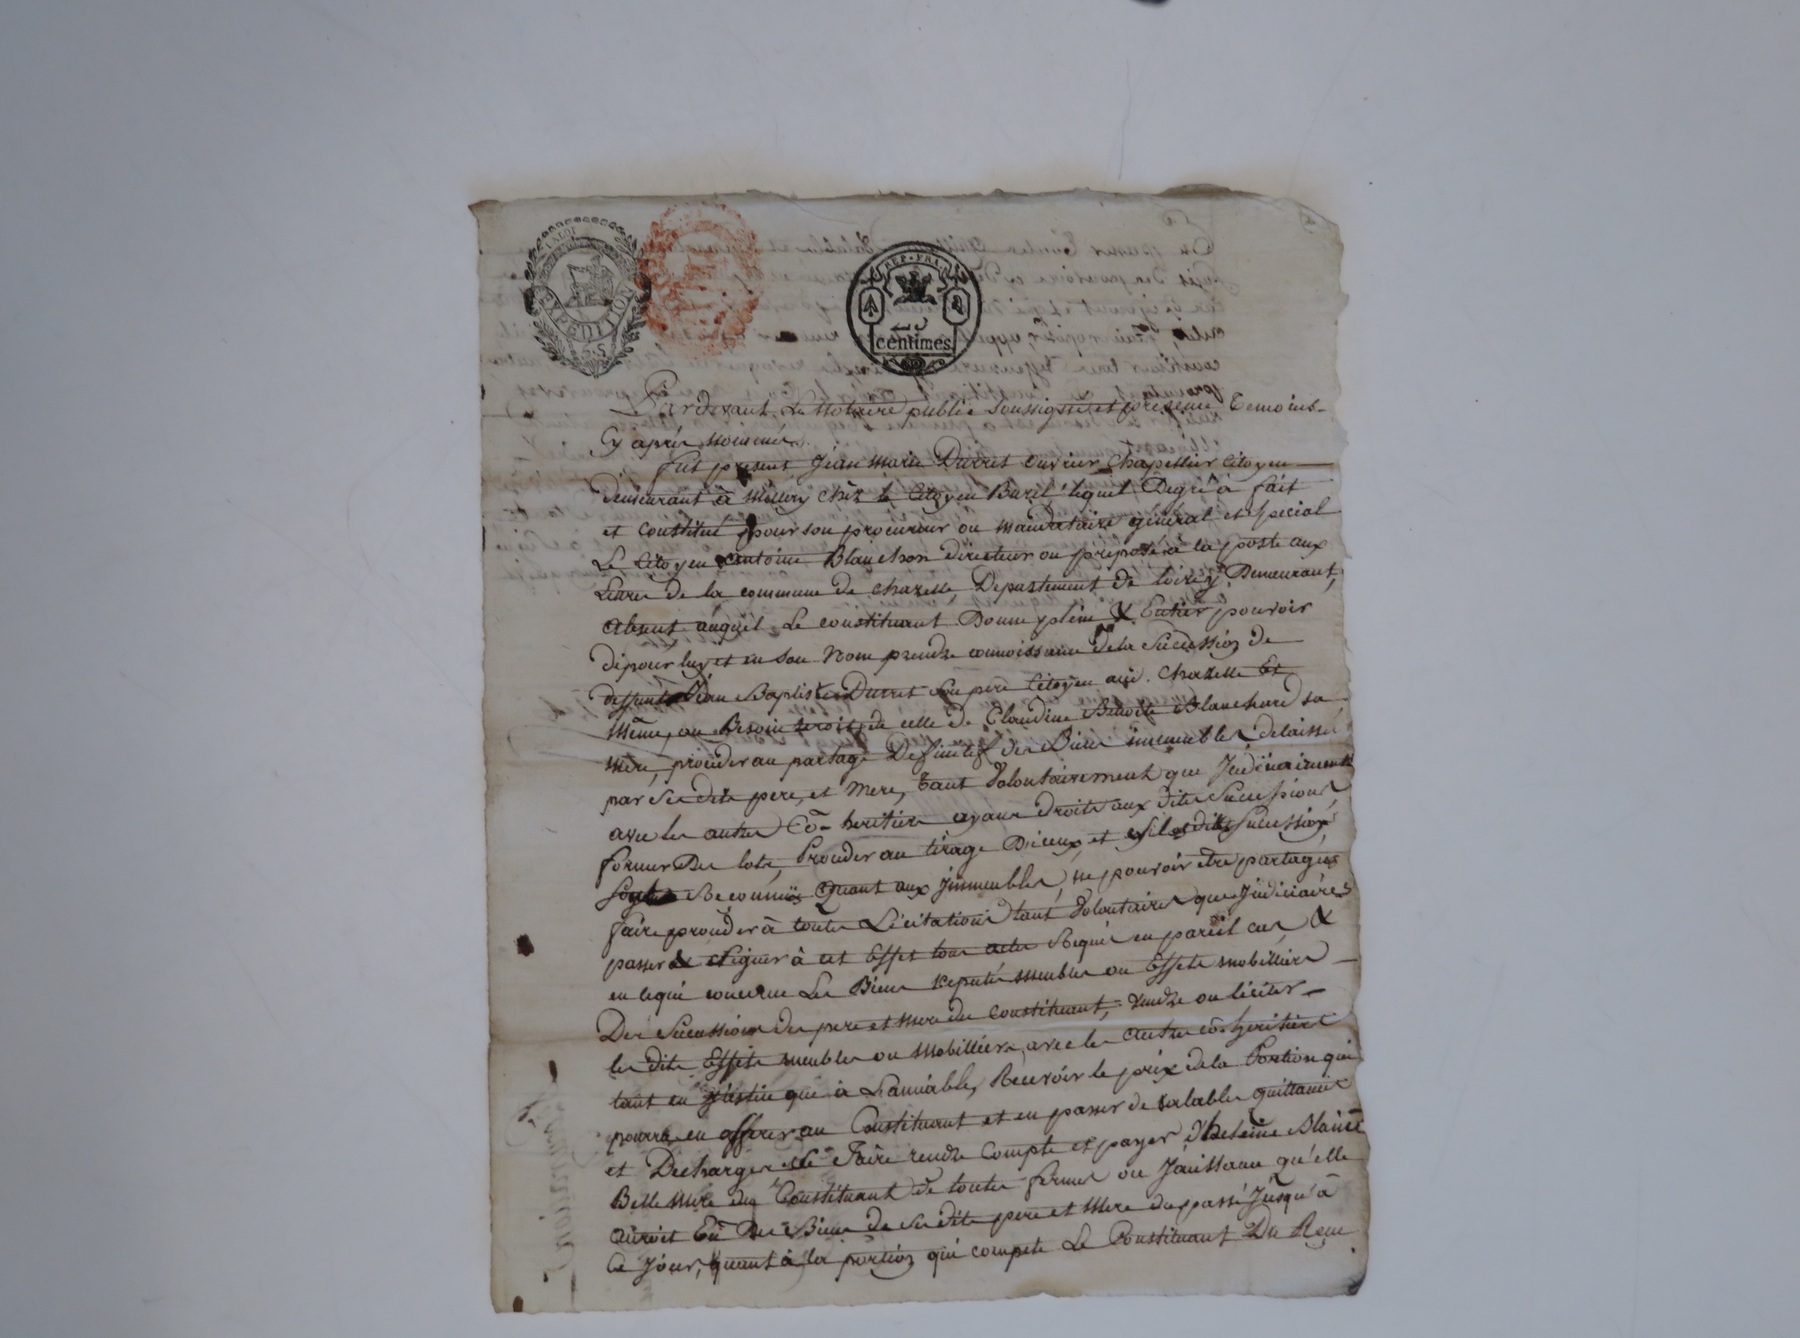 LA LOI
EXPEDITION
REP. FRA.
centimes
Pardevant Le Notaire public soussigné et présens Temoins
Cy après nommés
fut present Jean Marie Durret ouvrier Chapellier citoyen
demeurant à Millery chèz le Citoyen Buzel lequel Degré à fait
et constitué pour son procureur ou mandataire général et spécial
Le Citoyen Antoine Blanchon directeur ou préposé à la poste aux
Lettres de la commune de chazelle Departement de Loire y Demeurant,
absent auquel Le constituant Donne plein & Entier pouvoir
de pour luy et en son Nom prendre connoissance de la Succession de
deffunt Jean Baptiste Durret son père Citoyen audi. Chazelle Et
Même, au Besoin seroit, de celle de Claudine Benoite Blanchard sa
mère, procéder au partage Definitif des Biens immeubles delaissés
par ses dits père, et Mere, tant Volontairement que Judiciairement
avec les autres Cô-heritiers ayant droits aux dites Successions,
former Des lots, Procéder au tirage D'iceux, et si lesdittes Successions
Reconnües Quant aux Jmmeubles, ne pouvoir etre partagées
faire procéder à toutes Licitations tant Volontaires que Judiciaires
passer & signer à cet Effet tous actes Requis en pareil cas, &
en lequi concerne Les Biens reputés meubles ou Effets mobilliers
Des Successions des pere et mere du constituant, vendre ou liciter
les dits Effets meubles ou Mobilliers, avec les autres cô-heritiers
tant en Justice que à L'amiable, Recevoir le prix de la Portion qui
pourra en afferer au Constituant et en passer de valables quittances
et Decharges se Faire rendre Compte et payer d'heleine
Belle mere du Constituant de toutes fermes ou Jouissance qu'elle
auroit Eû Des Biens de ses dits pere et mere du passé Jusqu'à
Ce Jour, quant à la portion qui compete Le Constituant Du Reçu